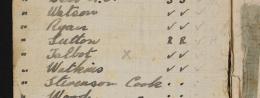 " Watson ✓ ✓
" Ryan ✓ ✓
" Sutton R R
" Talbot x ✓ ✓
" Watkins ✓ ✓
" Stevenson Cook
" Wood